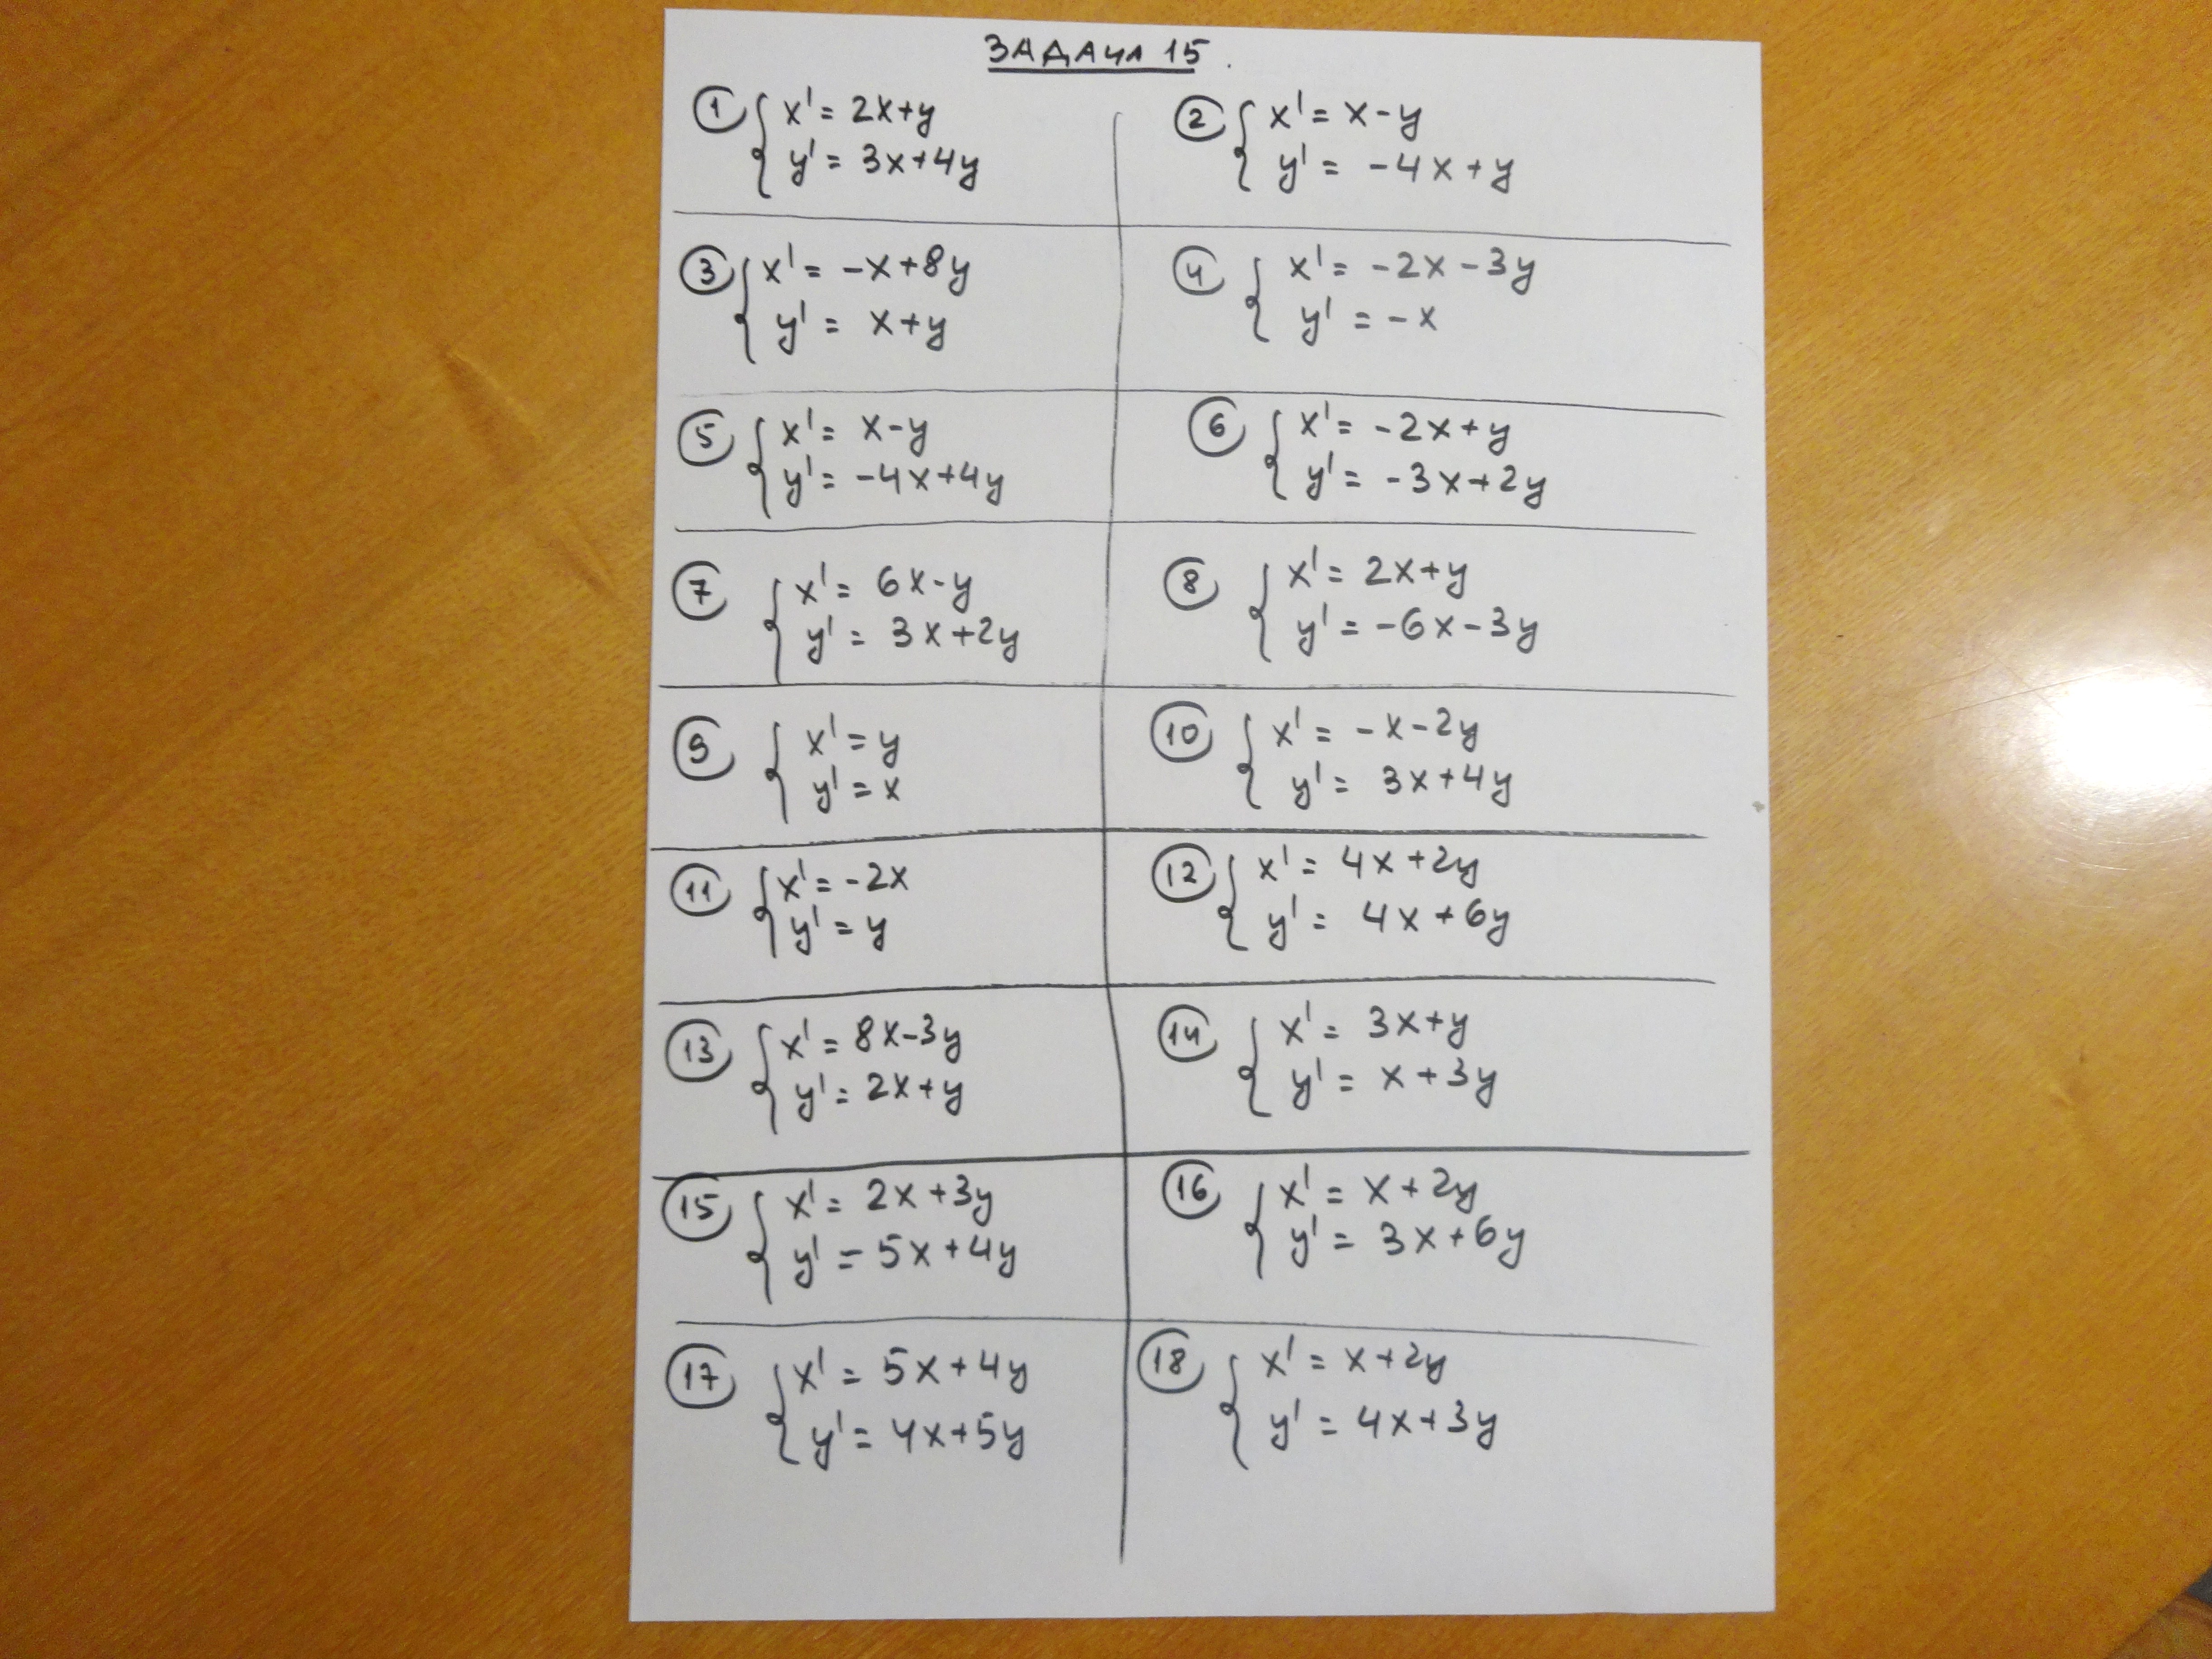 ЗАДАЧА 15.
1 { x' = 2x+y
y' = 3x+4y
2 { x' = x-y
y' = -4x+y
3 { x' = -x+8y
y' = x+y
4 { x' = -2x-3y
y' = -x
5 { x' = x-y
y' = -4x+4y
6 { x' = -2x+y
y' = -3x+2y
7 { x' = 6x-y
y' = 3x+2y
8 { x' = 2x+y
y' = -6x-3y
9 { x' = y
y' = x
10 { x' = -x-2y
y' = 3x+4y
11 { x' = -2x
y' = y
12 { x' = 4x+2y
y' = 4x+6y
13 { x' = 8x-3y
y' = 2x+y
14 { x' = 3x+y
y' = x+3y
15 { x' = 2x+3y
y' = 5x+4y
16 { x' = x+2y
y' = 3x+6y
17 { x' = 5x+4y
y' = 4x+5y
18 { x' = x+2y
y' = 4x+3y